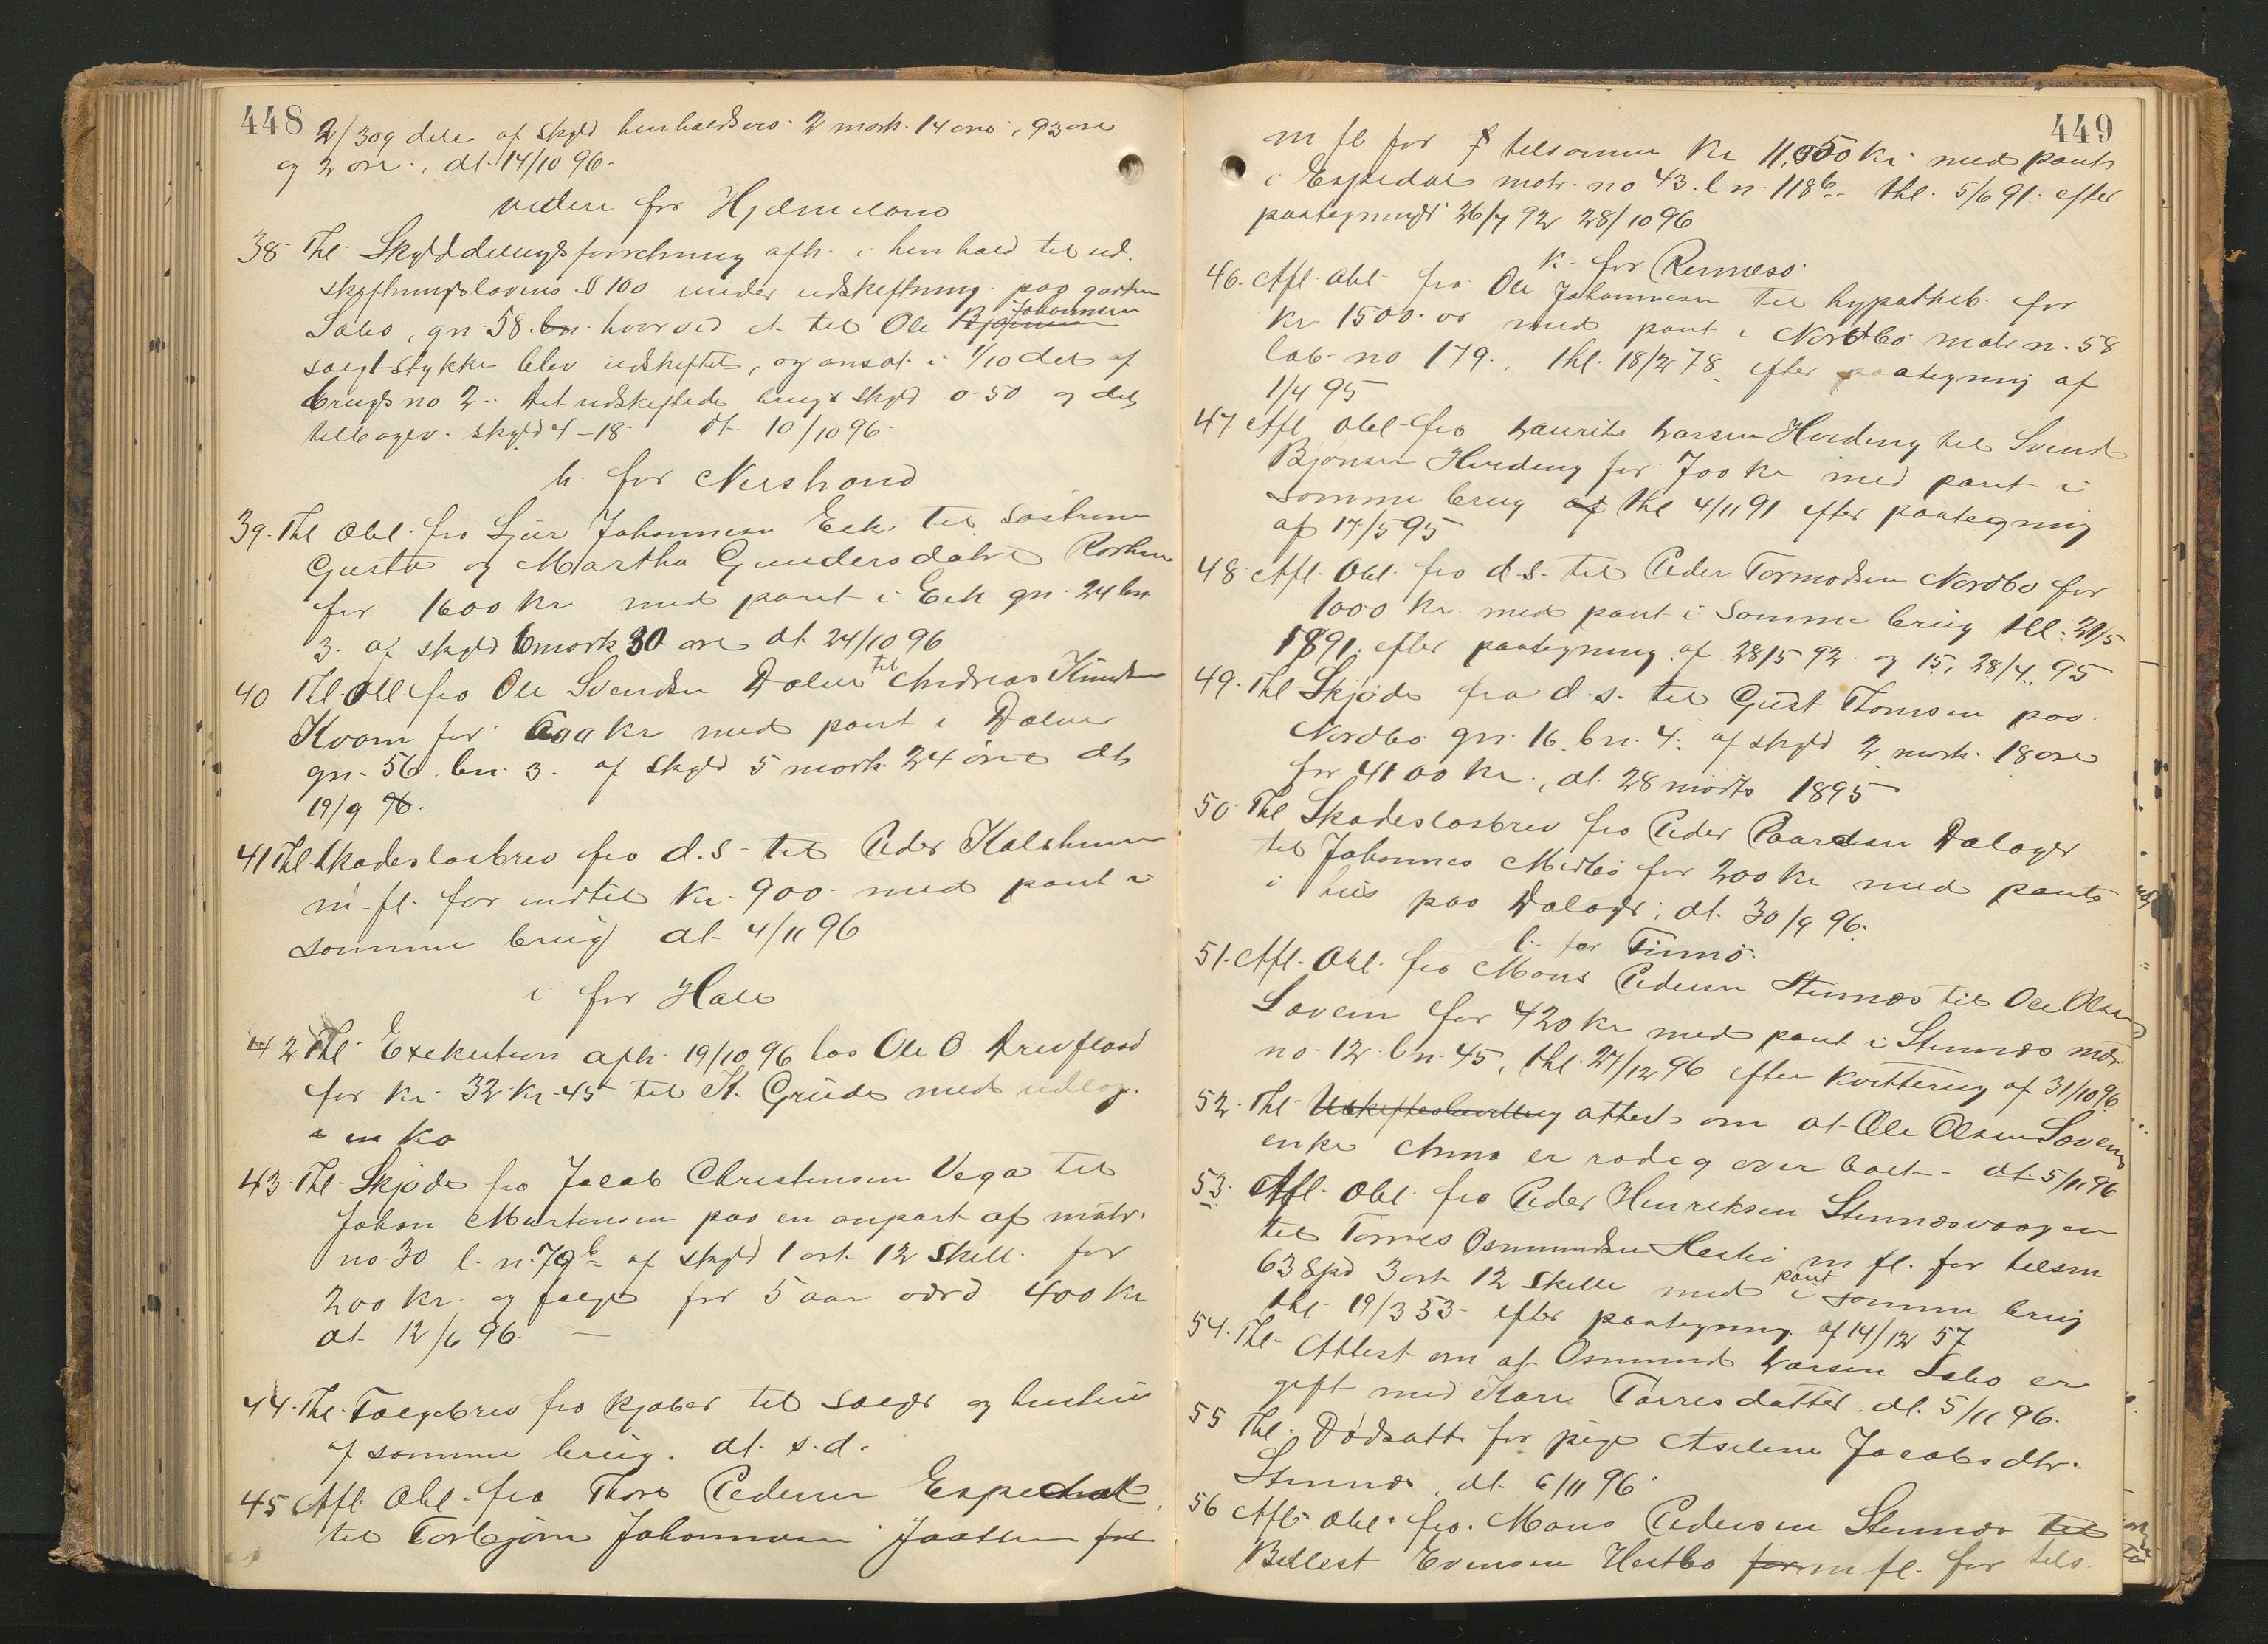 448
2/309 dele af skyld henholdsvis 2 mark 14 øre, 93 øre
og 2 øre, dt. 14/10 96.
videre for Hjelmeland
38 Thl. Skylddelingsforretning afh. i henhold til ud-
skiftningslovens § 100 under udskiftning paa garden
Sabø, gn. 58. bn. hvorved et til Ole Bjørnsen Johannesen
solgt stykke blev udskiftet, og ansat i 1/10 del af
brugs no 2. Det udskiftede brugs skyld 0-50 og det
tilbagev. skyld 4-18. Dt. 10/10 96.
h. for Nerstrand
39. Thl. Obl. fra Sjur Johannesen Eek til søstrene
Gurta og Martha Gundersdatre
for 1600 kr med pant i Eek gn. 24 bn
3. af skyld 6 mark 30 øre dt 24/10 96
40 Thl. Obl fra Ole Svendsen Dalen til Andreas Knudsen
Kvam for 600 kr med pant i Dalen
gn. 56. bn. 3. af skyld 5 mark 24 øre dt
19/9 96.
41 Thl. skadesløsbrev fra d.s. til Peder Kalsheim
m. fl. for indtil kr. 900 med pant i
samme brug dt 4/11 96
i for Hole
42 Thl. Exekution afh. 19/10 96 hos Ole O. Drevflaad
for kr. 32 kr. 45 til K. Grude med udlæg
i en ko
43. Thl. Skjøde fra Jacob Christensen Vega til
Johan Martensen paa en anpart af matr.
no. 30 l. n. 79b af skyld 1 ort 12 skill. for
200 kr. og folge for 5 aar værd 400 kr
dt 12/6 96. —
44. Thl. Folgebrev fra kjøber til sælger og hustru
af samme brug. dt. s.d.
45 Afl. Obl. fra Thore Pedersen Espedal
til Torbjørn Johannesen Jaatten for
449
m fl for tilsammen Kr 11,050 kr. med pant
i Espedal matr. no 43. l n. 118b. thl. 5/6 91. efter
paategninger 26/7 92 28/10 96
k. for Rennesø.
46. Afl. obl. fra Ole Johannesen til hypothekb. for
kr 1500. 00 med pant i Nordbø matr n. 58
løb. no 179., thl. 18/2 78 efter paategning af
1/4 95
47 Afl obl. fra Laurits Larsen Hveding til Svend
Bjørnsen Hveding for 700 kr med pant i
samme brug af thl. 4/11 91 efter paategning
af 17/5 95
48. Afl. Obl. fra d.s. til Peder Tormodsen Nordbø for
1000 kr. med pant i samme brug thl. 21/5
1891. efter paategning af 28/5 92. og 15, 28/4. 95
49. Thl Skjøde fra d.s. til Gust Thomsen paa
Nordbø gn. 16. bn. 4. af skyld 2 mark 18 øre
for 4100 kr., dt. 28 marts 1895
50. Thl Skadesløsbrev fra Peder Paardsen Dalager
til Johannes Medbø for 200 kr med pant
i hus paa Dalager, dt. 30/9 96.
l. for Finnø.
51. Afl. Obl. fra Mons Pedersen Stennes til Ole Olsen
Lovein for 420 kr med pant i Stennes mtr.
no. 12 l n. 45, thl. 27/12 96 efter kvittering af 31/10 96
52. Thl. attest om at Ole Olsen Lovein
enke Anna er raadig over boet. dt. 5/11 96
53. Afl. Obl. fra Peder Henriksen Stennesvaagen
til Tørres Osmundsen Hesbø m fl. for tilsm
63 Spd 3 ort 12 skill med pant i samme brug
thl. 19/3 53. efter paategning af 14/12 57
54. Thl. Attest om at Osmund Larsen Ladsbø er
gift med Kari Tørresdatter. dt. 5/11 96.
55 Thl. Dødsatt. for pige Aselene Jacobsdtr.
Stennes, dt. 6/11 96.
56 Afl. obl. fra Mons Pedersen Stennes til
Bellest Evensen Hestbø for m fl. for tils.